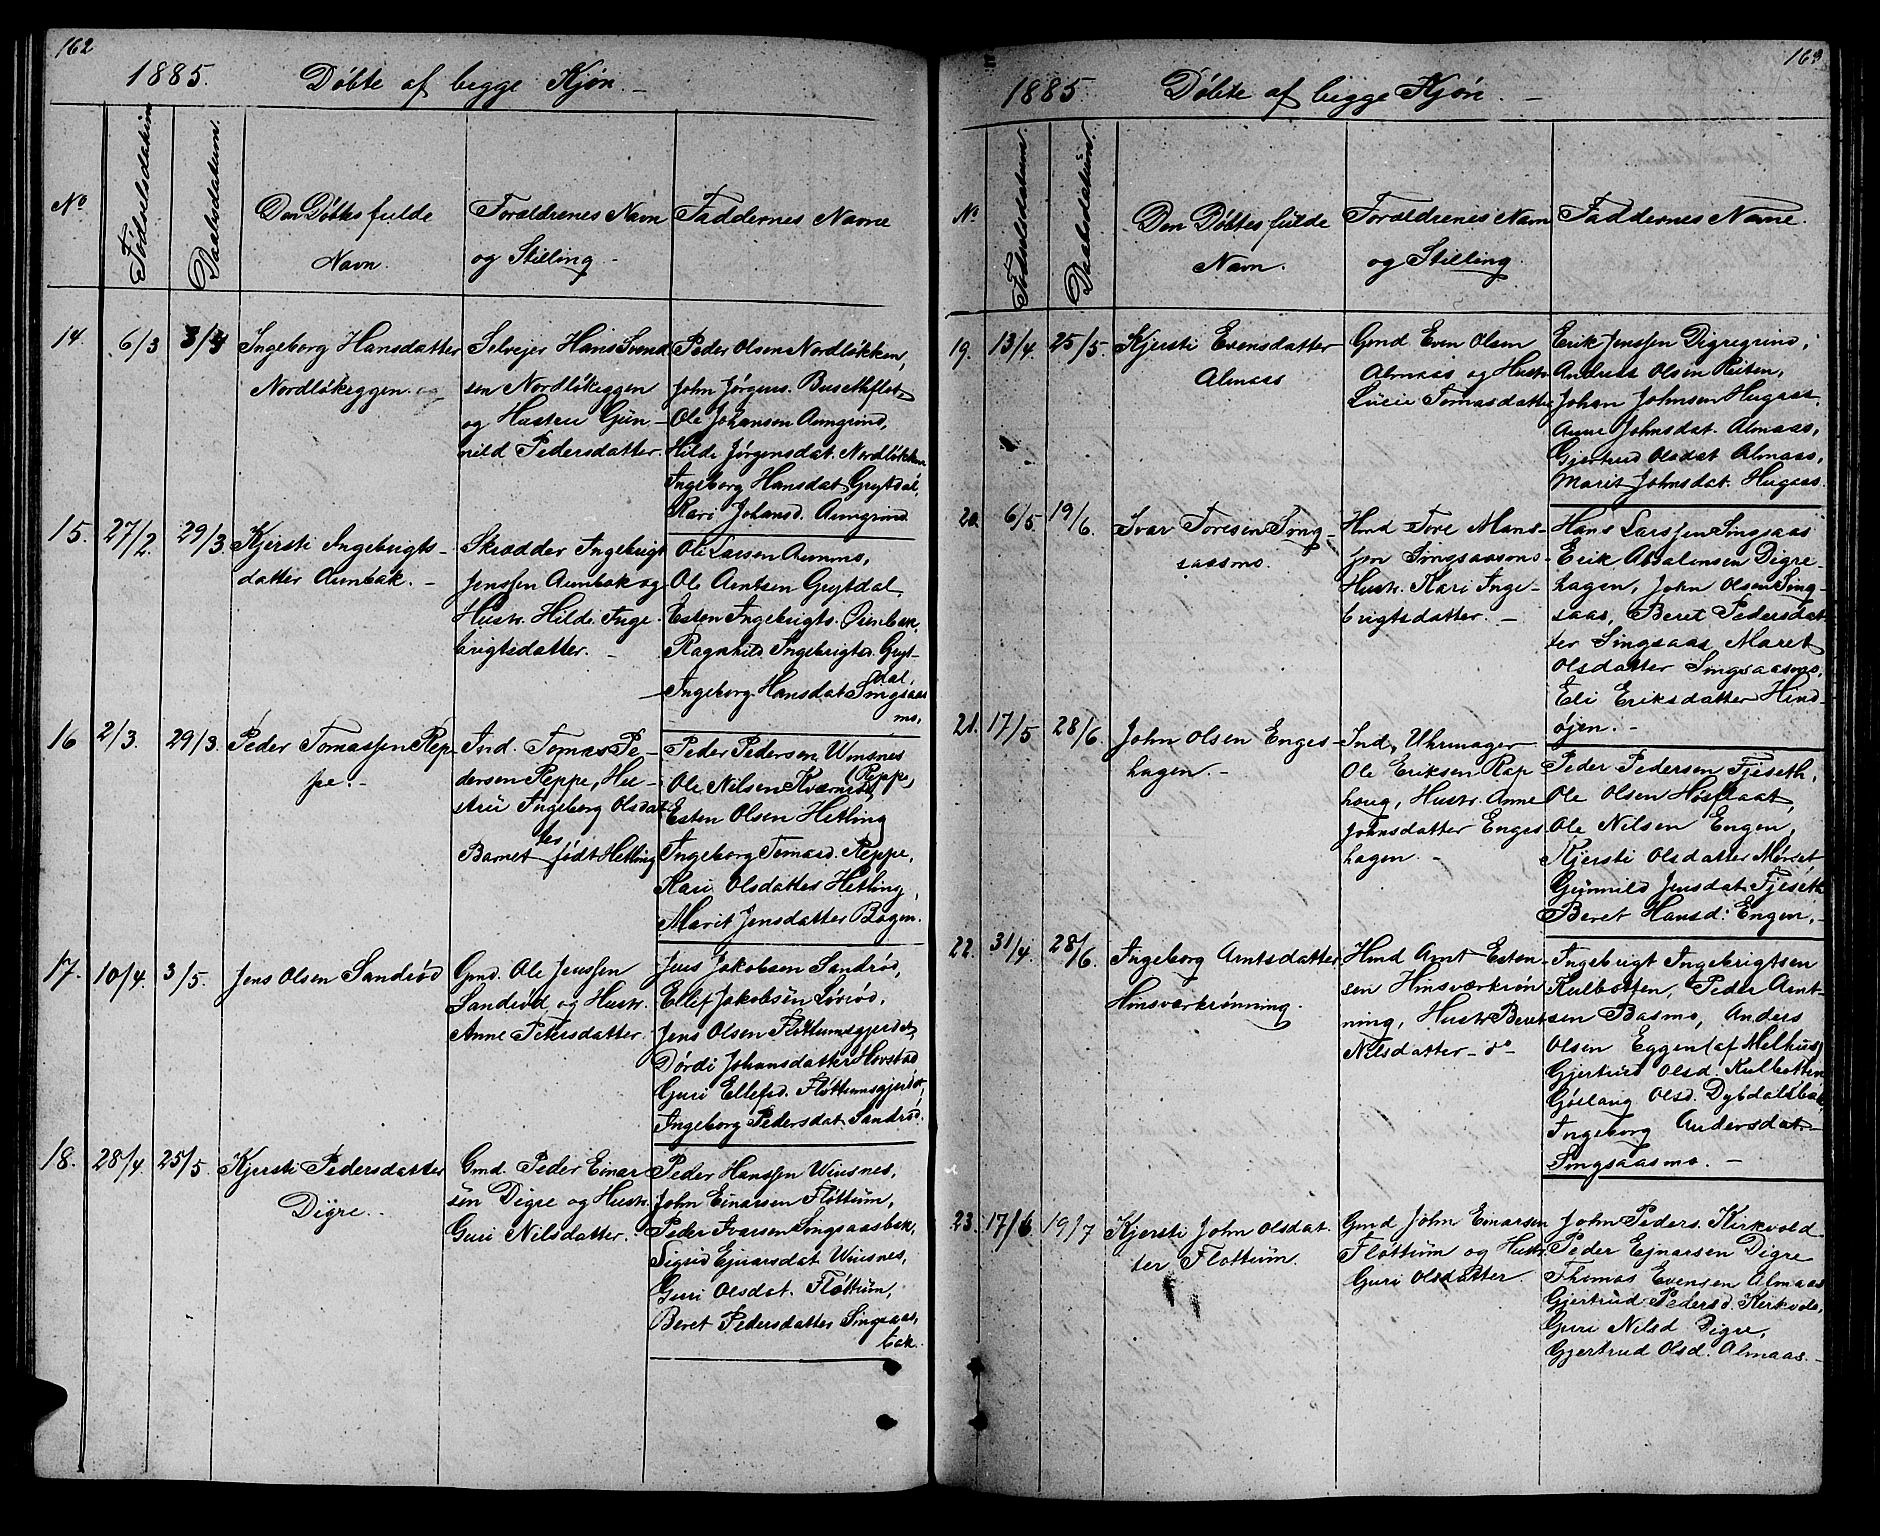 162
1885. Döbte af begge Kjøn. –
No
Fødselsdatum
Daabsdatum.
Den Döbtes fulde
Navn.
Forældrenes Navn
og Stilling. –
Faddernes Navne
14. 6/3 3/4
Ingeborg Hansdatter
Nordløkeggen
Selvejer Hans Svend
sen Nordløkeggen
og Hustru Gun –
nild Pedersdatter.
Peder Olsen Nordløkken,
John Jörgens.
Ole Johansen Aungrind,
Hilde Jörgensdat. Nordløkken
Ingeborg Hansdat Grytdal,
Kari Johansd. Aungrind
15. 27/2 29/3.
Kjersti Ingebrigts-
datter Aunbak. –
Skrædder Ingebrigt
Jenssen Aunbak og
Hustr. Hilde Inge
brigtsdatter. –
Ole Larsen Aunmo,
Ole Arntsen Grytdal,
Esten Ingebrigts. Aunbak,
Ragnhild Ingebrigtsd. Gryt-
dal,
Ingeborg Hansdat Singsaas
mo,
16 2/3. 29/3.
Peder Tomassen Rep-
pe. –
Ind. Tomas Pe-
dersen Reppe, Hu-
stru Ingeborg Olsdat
ter
Barnet født Hetling
Peder Pedersen Winsnes
(Reppe)
Ole Nilsen Kværnes
Esten Olsen Hetling
Ingeborg Tomasd. Reppe,
Kari Olsdatter Hetling,
Marit Jensdatter Bogen.
17. 10/4. 3/5.
Jens Olsen Sandröd
Gmd. Ole Jenssen
Sandröd og Hustr.
Anne Petersdatter.
Jens Jakobsen Sandröd,
Ellef Jakobsen
Jens Olsen Fløttumsgjerdet,
Dördi Johansdatter Hovstad
Guri Ellefsd. Fløttumsgjerdet,
Ingeborg Pedersdat Sandröd.
18. 28/4 25/5
Kjersti Pedersdatter
Digre. –
Gmd. Peder Einar
sen Digre og Hustr.
Guri Nilsdatter.
Peder Hanssen Winsnes,
John Einarsen Fløttum,
Peder Ivarsen Singsaasbak,
Sigrid Ejnarsdat Winsnes,
Guri Olsdat. Fløttum,
Beret Pedersdatter Singsaas,
bak.
163
1885 Döbte af begge Kjøn. –
No
Fødselsdatum
Daabsdatum.
Den Döbtes fulde
Navn.
Forældrenes Navn
og Stilling.
Faddernes Navne.
19. 13/4. 25/5.
Kjersti Evensdatter
Almaas
Gmd Even Olsen
Almaas og Hustr.
Lucie Tomasdatter
Erik Jenssen Digregrind,
Andreas Olsen Reiten,
Johan Johnsen Hugaas.
Anne Johnsdat. Almaas,
Gjertrud Olsdat Almaas,
Marit Johnsdat. Hugaas.
20. 6/5 19/6.
Ivar Toresen Sing-
saasmo.
Hmd Tore Hans-
sen Singsaasmo
Hustr. Kari Inge-
brigtsdatter. –
Hans Larssen Singsaas
Erik Absalonsen Digre-
hagen, John Olsen Sing-
saas, Beret Pedersdat
ter Singsaas, Maret
Olsdatter Singsaasmo,
Eli Eriksdatter Hind-
öjen. –
21. 17/5 28/6.
John Olsen Enges-
hagen. –
Ind, Uhrmager
Ole Eriksen Rap
houg, Hustr. Anne
Johnsdatter Enges
hagen. –
Peder Pedersen Fjeseth,
Ole Olsen Hosflaat,
Ole Nilsen Engen,
Kjersti Olsdatter Morset
Gunnild Jensdat. Fjeseth
Beret Hansd. Engen, –
22. 31/4. 28/6.
Ingeborg Arntsdatter
Hinsværkrønning.
Hmd Arnt Esten-
sen Hinsværkrøn
ning, Hustr. Beret
Nilsdatter – do –
Ingebrigt Ingebrigtsen
Kulbotten, Peder Arnt-
sen Basmo, Anders
Olsen Eggen (af Melhus)
Gjertrud Olsd. Kulbotten
Gölaug Olsd. Dybdalsbak,
Ingeborg Andersdat –
Singsaasmo. –
23. 17/6 19/7
Kjersti John Olsdat
ter Fløttum.
Gmd John Einarsen
Fløttum og Hustr.
Guri Olsdatter
John Peders. Kirkvold
Peder Ejnarsen Digre
Thomas Evensen Almaas
Gjertrud Pedersd. Kirkvold,
Guri Nilsd Digre,
Gjertrud Olsd. Almaas. –